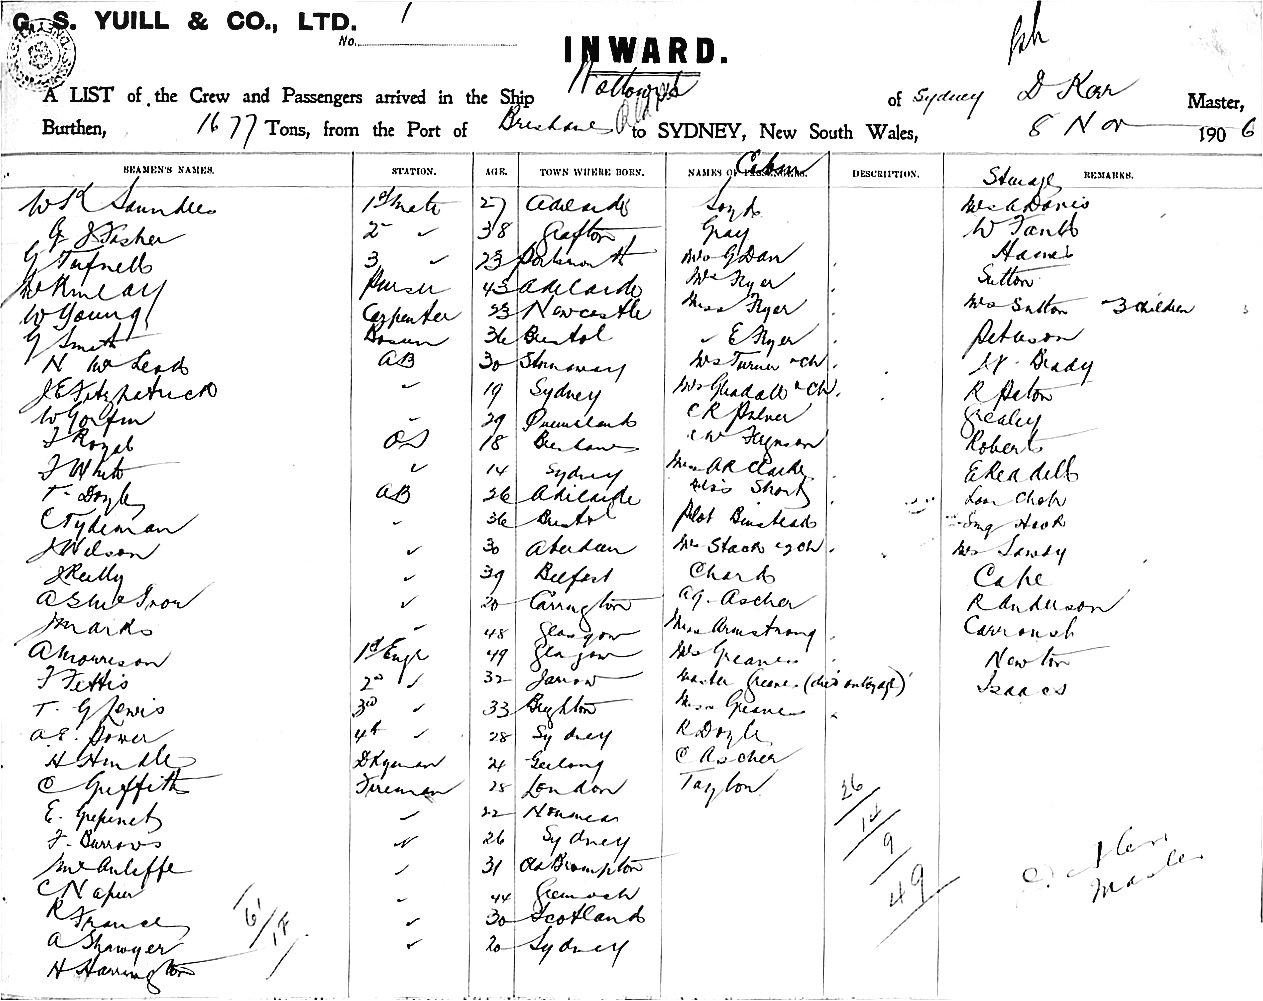 G. S. YUILL & CO., LTD.
No. 1
INWARD.
A LIST of the Crew and Passengers arrived in the Ship of Sydney D Kerr Master,
Burthen, 1677 Tons, from the Port of Brisbane to SYDNEY, New South Wales, 8 Nov 1906
SEAMEN'S NAMES. STATION. AGE. TOWN WHERE BORN. NAMES OF PASSENGERS. Cabin DESCRIPTION. Steerage REMARKS.
Saunders 1st Mate 27 Adelaide Mrs A Davis
G J Fisher 2 ✓ 38 Grafton Gray W
G Tufnell 3 ✓ 23 Portsmouth Mrs G Dan
McKinlay Purser 43 Adelaide Mrs Fryer Sutton
W Young Carpenter 23 Newcastle Miss Fryer Mrs Sutton 3 children
G Smith Bosun 36 Bristol E Fryer Peterson
N McLeod AB 30 Stornaway Mrs Turner + Ch Brady
J E Fitzpatrick ✓ 19 Sydney Mrs + Ch R Paton
W 29 Queensland C R Palmer Grealey
J Royal OS 18 Brisbane Roberts
J White ✓ 14 Sydney Miss A R Clarke E Readdell
T. Doyle AB 26 Adelaide Short
C Tydeman 36 Bristol Binstead Sing Hook
J Wilson ✓ 30 Aberdeen Mrs Stack + 2 Ch Mrs
J Reilly ✓ 39 Belfast Chard Cane
✓ 20 Carrington A G. Ascher R Anderson
J Marks ✓ 48 Glasgow Miss Armstrong
A Morrison 1st Engr 49 Glasgow Mrs Greaves Newton
F Fettis 2nd ✓ 32 Jarrow Master Greaves (died on voyage) Isaacs
T. G Lewis 3rd ✓ 33 Brighton Miss Greaves
A. E. Power 4th ✓ 28 Sydney R Doyle
H Hindle Dkyman 21 Geelong C Ascher
C Griffith Fireman 28 London Taylor
E. ✓ 22 Noumea
F. Burrows ✓ 26 Sydney
McAuliffe ✓ 31 Old Brompton
C Napier 44 Greenock
R France ✓ 30 Scotland
A Shawyer ✓ 20 Sydney
H Harrington
26
14
9
49
Master